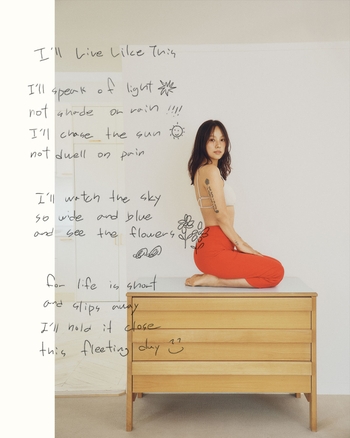 I'll Live Like This
I'll speak of light
not shade or rain !!!!
I'll chase the sun
not dwell on pain
I'll watch the sky
so wide and blue
and see the flowers
for life is short
and slips away
I'll hold it close
this fleeting day